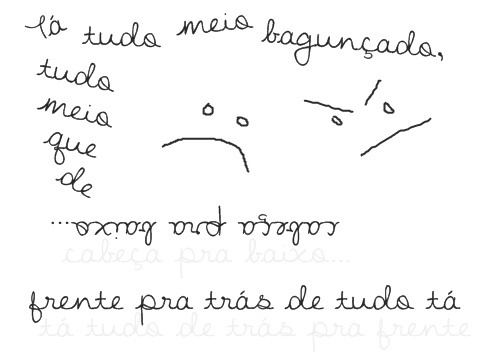 tá tudo meio bagunçado,
tudo
meio
que
de
cabeça pra baixo...
cabeça pra baixo...
frente pra trás de tudo tá
tá tudo de trás pra frente